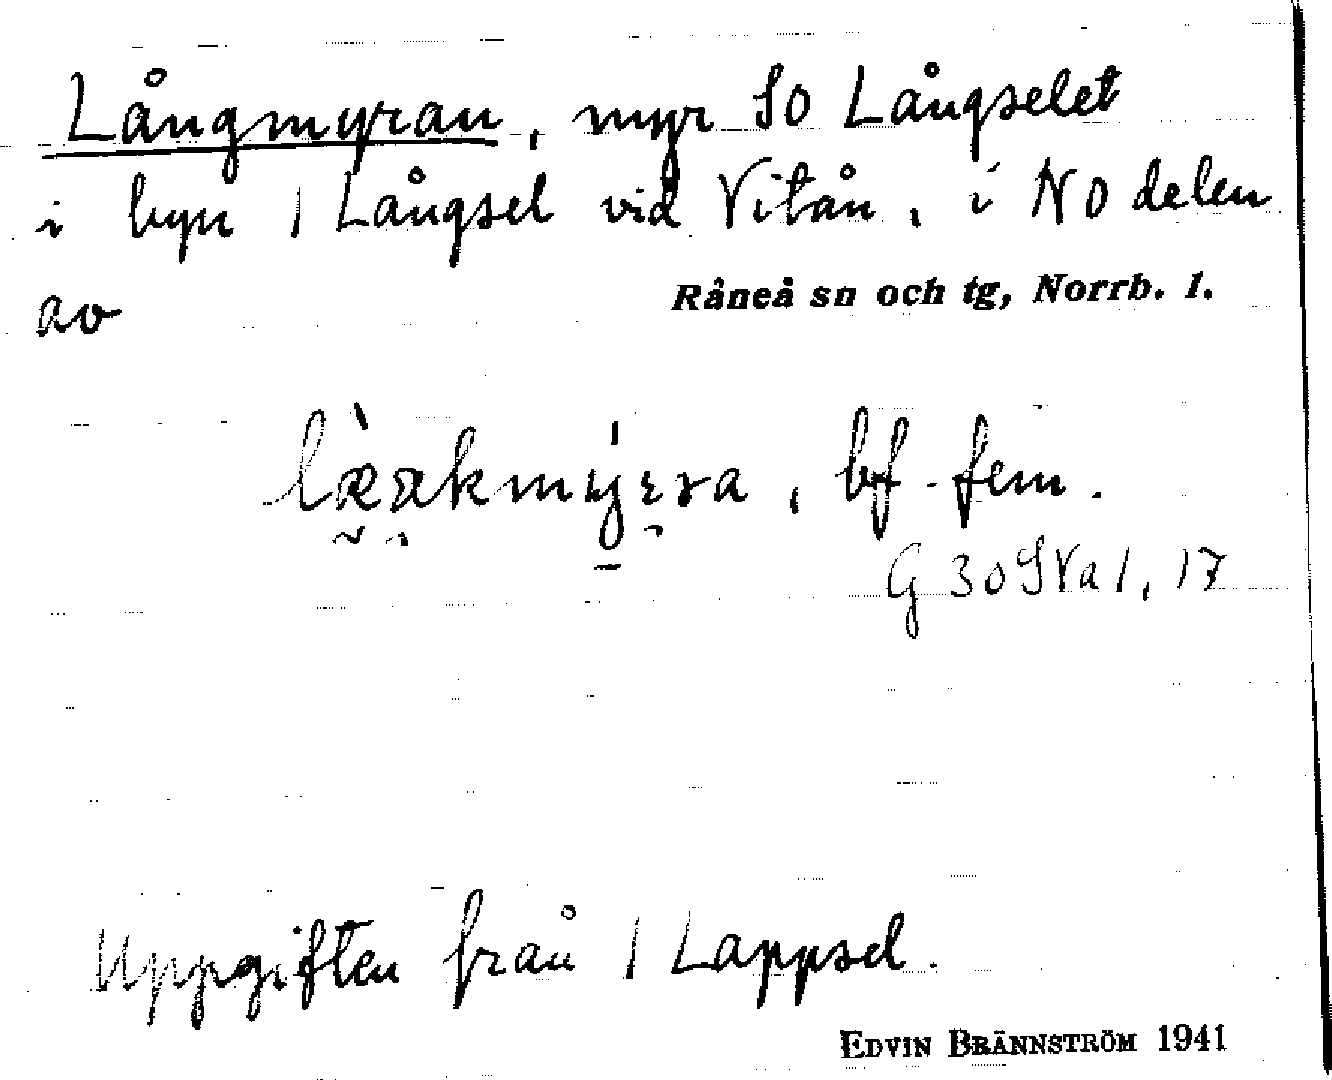 Långmyran, myr SO Långselet
i byn 1 Långsel vid Vitån, i NO delen
av Råneå sn och tg, Norrb. l.
bf. fem.
G 30 SVa 1, 17
Uppgiften från 1 Lappsel.
EDVIN BRÄNNSTRÖM 1941